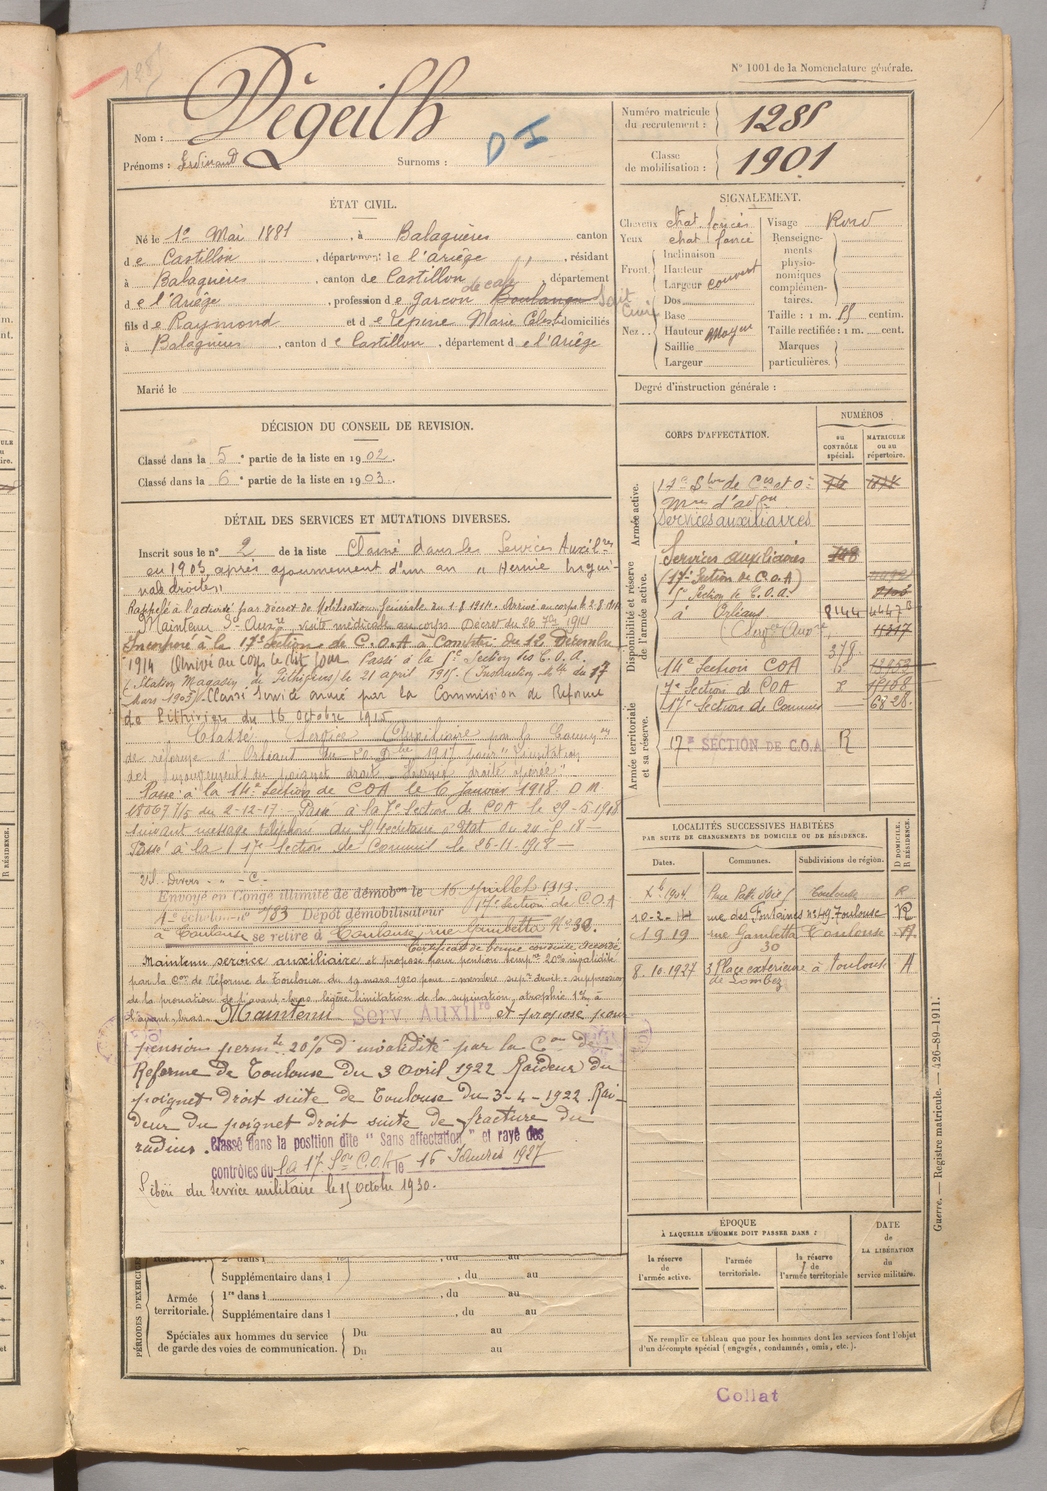 N° 1001 de la Nomenclature générale.
Dégeilh
Nom :
Prénoms : Ferdinand Surnoms :
D I
Numéro matricule du recrutement : 1285
Classe de mobilisation : 1901
ÉTAT CIVIL.
Né le 1er Mai 1881, à Balaguères canton
de Castillon, département de l'Ariège, résidant
à Balaguères, canton de Castillon, département
de l'Ariège, profession de garçon de café Boulanger
fils de Raymond et de Lépine Marie Céleste domiciliés
à Balaguères, canton de Castillon, département de l'Ariège
Marié le
SIGNALEMENT.
Cheveux chat. foncés
Yeux chat. foncé
Front. Inclinaison
Hauteur
Largeur couvert
Nez. Dos
Base
Hauteur moyen
Saillie
Largeur
Visage Rond
Renseignements physionomiques complémentaires.
Taille : 1 m. centim.
Taille rectifiée : 1 m. cent.
Marques particulières.
Degré d'instruction générale :
DÉCISION DU CONSEIL DE REVISION.
Classé dans la 5e partie de la liste en 1902.
Classé dans la 6e partie de la liste en 1903.
DÉTAIL DES SERVICES ET MUTATIONS DIVERSES.
Inscrit sous le n° 2 de la liste Classé dans les Services Auxil.res
en 1903 après ajournement d'un an "Hernie ingui-
nale droite"
Rappelé à l'activité par décret de Mobilisation Générale du 1.8.1914. Arrivé au corps le 2.8.1914
Maintenu Sce Auxre, visite médicale au corps Décret du 26 7bre 1914
Incorporé à la 17e Section de C.O.A à Compter du 12 Décembre
1914 Arrivé au corps le dit jour Passé à la 5e Section des C.O.A.
(Station Magasin de Pithiviers) le 21 avril 1915. (Instruction du 17
Mars 1903). Classé Service armé par la Commission de Réforme
de Pithiviers du 16 octobre 1915
Classé Service Auxiliaire par la Common
de réforme d'Orléans du 20 1917 pour "limitation
des mouvements du poignet droit - Hernie droite opérée".
Passé à la 14e Section de COA le 6 Janvier 1918. D.M.
18067 7/5 du 2-12-17. Passé à la 7e Section de COA le 29-5-1918
suivant message téléphon. du S/Secrétaire d'Etat du 24-5-18
Passé à la 17e Section de Commis le 26-11-1918
Envoyé en Congé illimité de démobon le 16 Juillet 1919
4e échelon n° 183 Dépôt démobilisateur 17e Section de C.O.A
à Toulouse se retire à Toulouse, rue Gambetta No 30.
Certificat de bonne conduite Accordé
Maintenu service auxiliaire et proposé pour pension tempre 20% invalidité
par la Con de réforme de Toulouse du 19 mars 1920 pour membre supr droit : suppression
de la pronation de l'avant-bras légère limitation de la supination, atrophie 1% à
l'avant-bras. Maintenu Serv. Auxilre et proposé pour
pension permte 20% d'invalidité par la Con de
Réforme de Toulouse du 3 Avril 1922 Raideur du
poignet droit suite de Toulouse du 3-4-1922. Rai-
deur du poignet droit suite de fracture du
radius. Classé dans la position dite "Sans affectation" et rayé des
contrôles du la 17 Son C.O.A le 15 Janvier 1927
Libéré du service militaire le 15 octobre 1930.
CORPS D'AFFECTATION.
NUMÉROS
au CONTRÔLE spécial.
MATRICULE ou au répertoire.
Armée active.
17e Son de Cis et Ors
Mres d'adon
Services auxiliaires
Disponibilité et réserve de l'armée active.
Services auxiliaires
(17e Section de C.O.A)
5e Section de C.O.A.
à Orléans 8144
14e Section COA
7e Section de COA
17e Section de Commis 6828
Armée territoriale et sa réserve.
17e SECTION DE C.O.A. R
LOCALITÉS SUCCESSIVES HABITÉES
PAR SUITE DE CHANGEMENTS DE DOMICILE OU DE RÉSIDENCE.
Dates. Communes. Subdivisions de région. D DOMICILE. R RÉSIDENCE.
Xbre 1904 Toulouse R
10-2-14 rue des Fontaines n° 49 Toulouse R
1919 rue Gambetta 30 Toulouse
8.10.1927 3 Place extérieure de Lombez à Toulouse A
ÉPOQUE
À LAQUELLE L'HOMME DOIT PASSER DANS :
la réserve de l'armée active.
l'armée territoriale.
la réserve de l'armée territoriale
DATE de LA LIBÉRATION du service militaire.
Ne remplir ce tableau que pour les hommes dont les services font l'objet
d'un décompte spécial (engagés, condamnés, omis, etc.).
PÉRIODES D'EXERCICES
Supplémentaire dans l , du au
Armée territoriale.
1re dans l , du au
Supplémentaire dans l , du au
Spéciales aux hommes du service
de garde des voies de communication.
Du au
Du au
Guerre. — Registre matricule. — 426-89-1911.
Collat